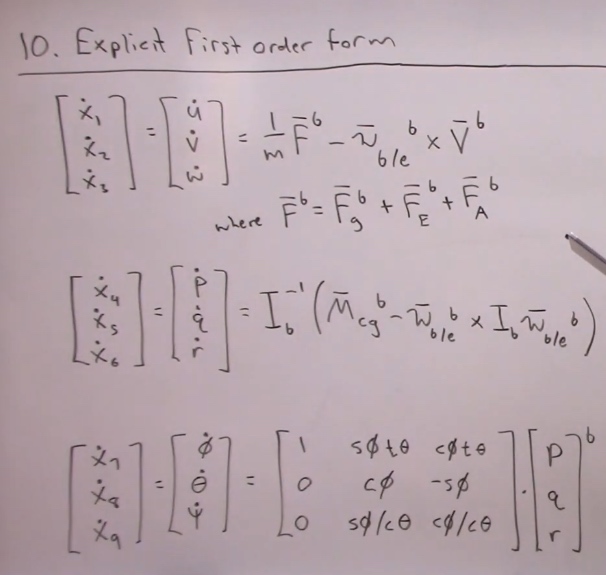 10. Explicit First order form
[ẋ₁ ẋ₂ ẋ₃] = [u̇ v̇ ẇ] = 1/m F̄ᵇ - ω̄_b/e ᵇ × V̄ᵇ
where F̄ᵇ = F̄_g ᵇ + F̄_E ᵇ + F̄_A ᵇ
[ẋ₄ ẋ₅ ẋ₆] = [ṗ q̇ ṙ] = I_b⁻¹ (M̄_cg ᵇ - ω̄_b/e ᵇ × I_b ω̄_b/e ᵇ)
[ẋ₇ ẋ₈ ẋ₉] = [ϕ̇ θ̇ ψ̇] = [1 sϕtθ cϕtθ; 0 cϕ -sϕ; 0 sϕ/cθ cϕ/cθ] · [p q r]ᵇ